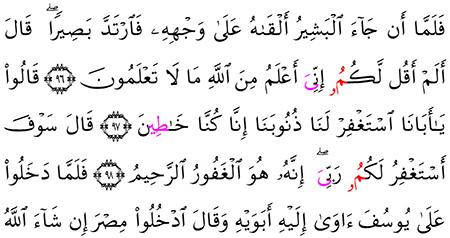 فَلَمَّا أَن جَآءَ الْبَشِيرُ أَلْقَىٰهُ عَلَىٰ وَجْهِهِۦ فَارْتَدَّ بَصِيرًاۖ قَالَ
أَلَمْ أَقُل لَّكُمُۥ إِنِّىَ أَعْلَمُ مِنَ اللَّهِ مَا لَا تَعْلَمُونَ ﴿٩٦﴾ قَالُوا۟
يَٰٓأَبَانَا اسْتَغْفِرْ لَنَا ذُنُوبَنَا إِنَّا كُنَّا خَٰطِينَ ﴿٩٧﴾ قَالَ سَوْفَ
أَسْتَغْفِرُ لَكُمُۥ رَبِّىَۖ إِنَّهُۥ هُوَ الْغَفُورُ الرَّحِيمُ ﴿٩٨﴾ فَلَمَّا دَخَلُوا۟
عَلَىٰ يُوسُفَ ءَاوَىٰٓ إِلَيْهِ أَبَوَيْهِ وَقَالَ ادْخُلُوا۟ مِصْرَ إِن شَآءَ اللَّهُ